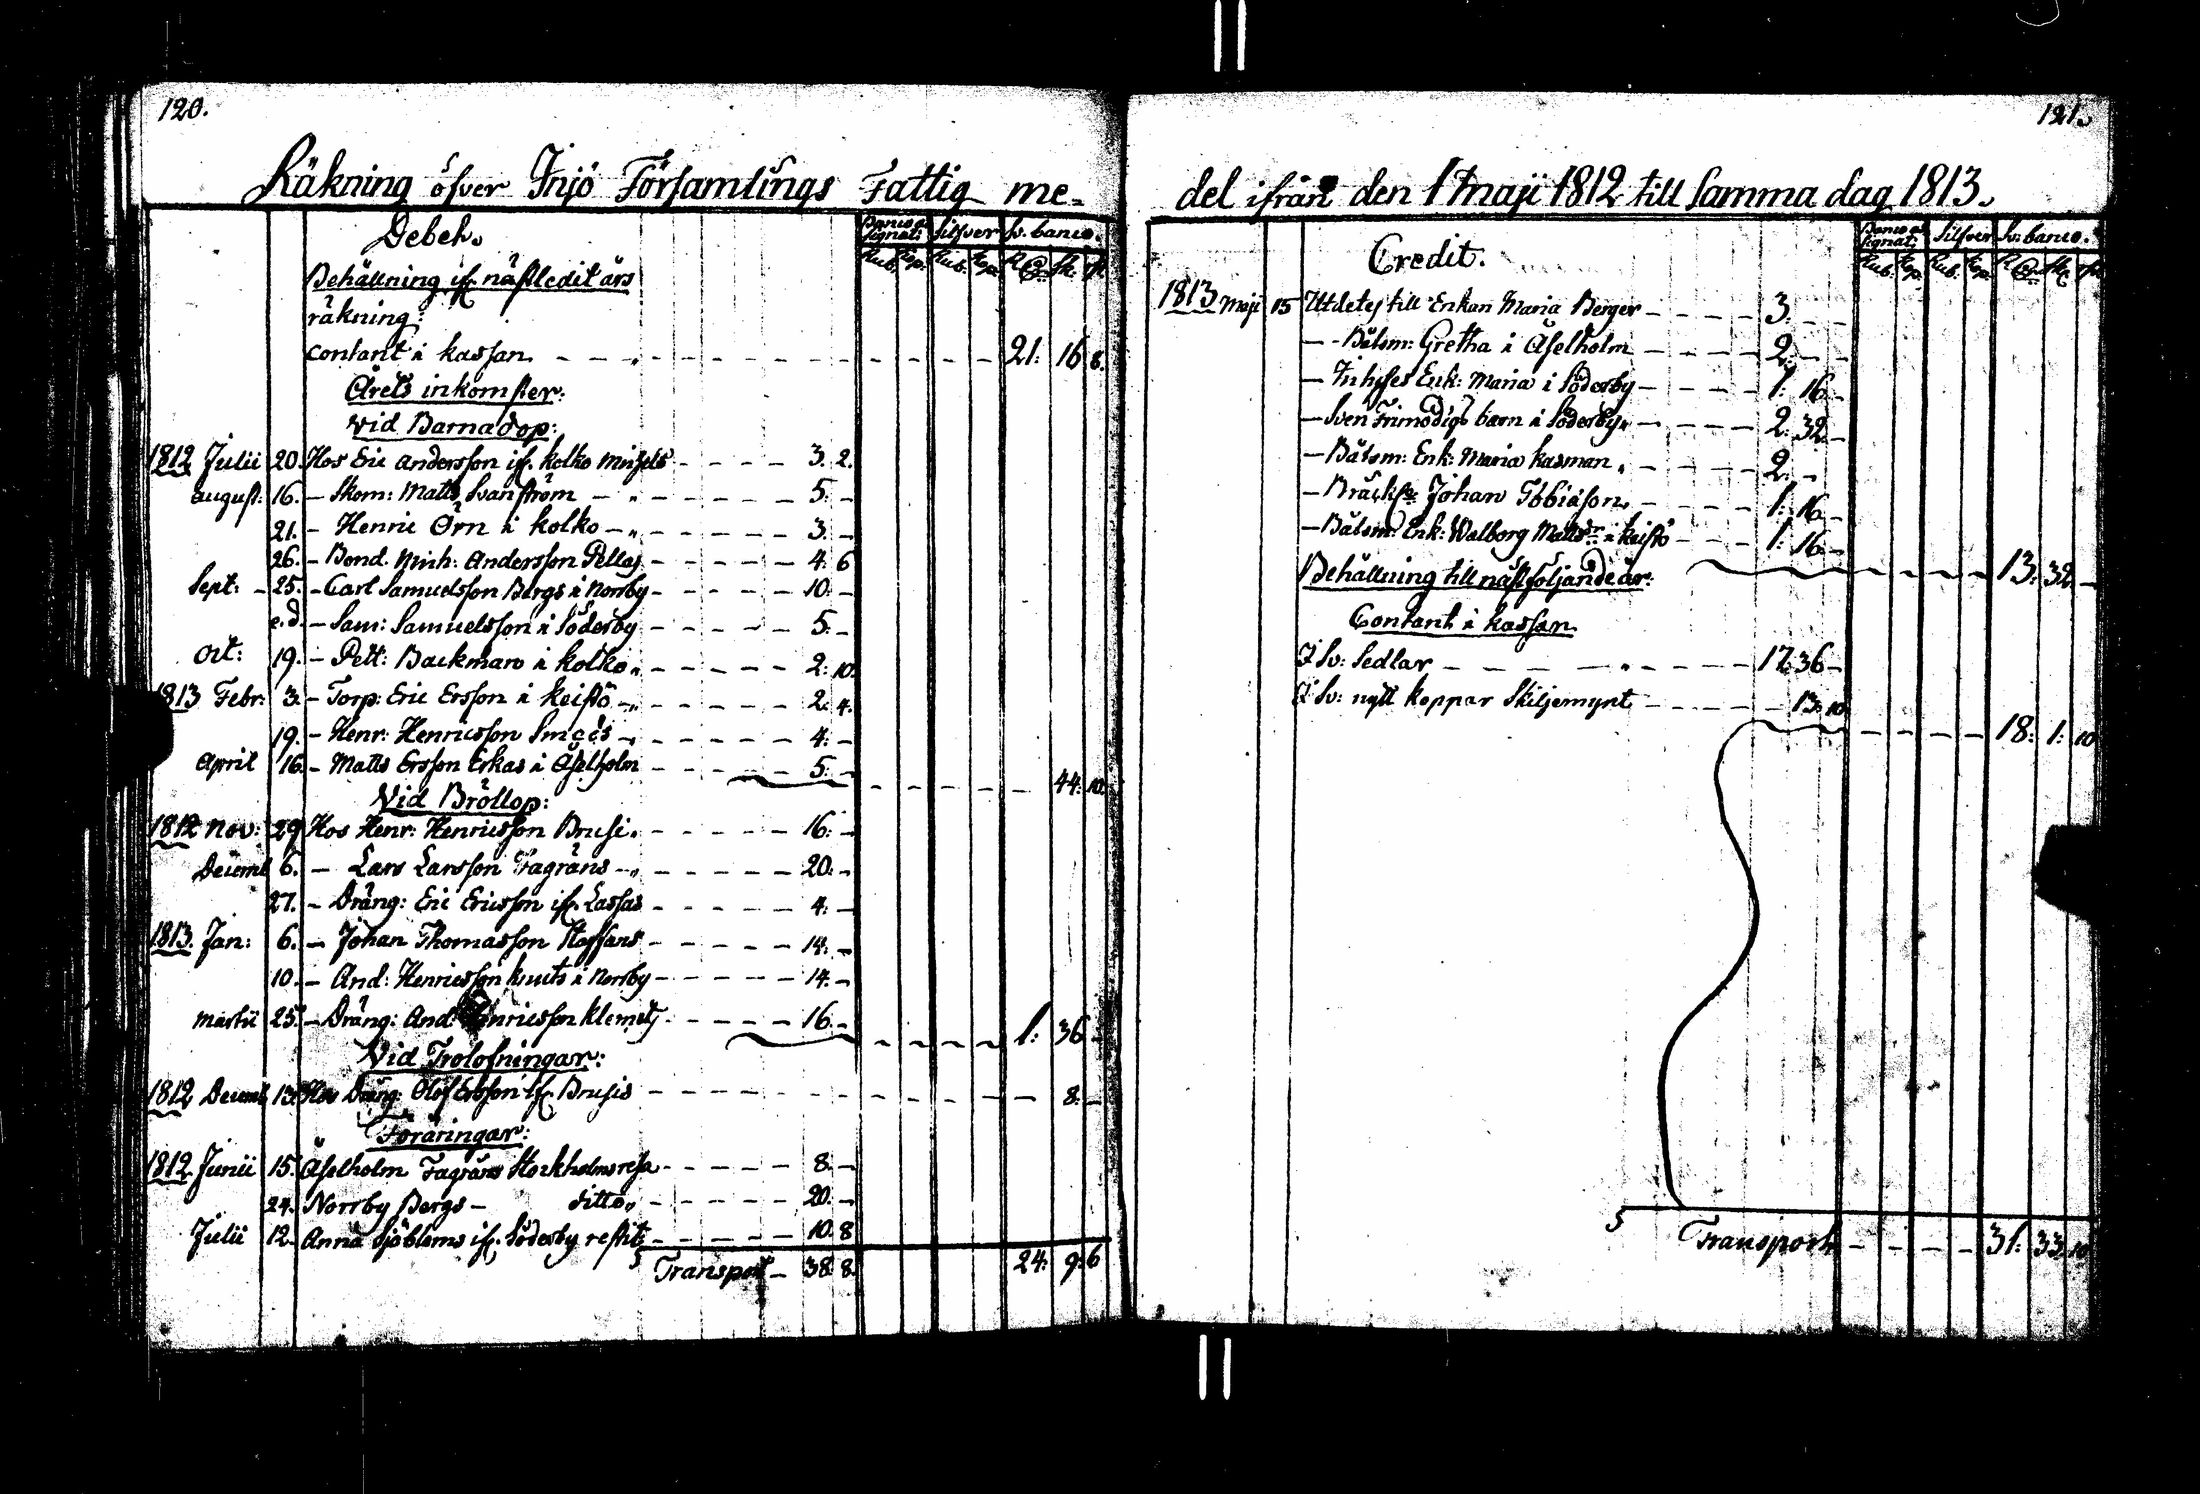 120.
Räkning öfver Iniö Församlings Fattig me-
Debet.
Banco assignat: Silfver Sv. banco.
Rub. Kop. Rub. Kop. R Sk. rst
Behållning ifr. nästledit års
räkning:
Contant i kassan. 21: 16 8.
Årets inkomster:
Vid Barnadop:
1812 Julii 20. Hos Eric Andersson ifr. Kolko 3. 2.
August: 16. – Skom: Matts Svanström 5. –
21. – Henric Örn i Kolko 3. –
26. – Bond. Mich: Andersson Pellas 4. 6
Sept: 25. – Carl Samuelsson Bergs i Norrby 10. –
e.d. – Sam: Samuelsson i Söderby 5. –
Oct: 19. – Pett: Backman i Kolko 2. 10.
1813 Febr: 3. – Torp: Eric Ersson i Keistö 2. 4.
19. – Henr: Henricsson 4. –
April 16. – Matts Ersson Erkas i Åselholm 5. –
44. 10.
Vid Bröllop:
1812 Nov: 29 Hos Henr: Henricsson Brusi. 16. –
Decemb 6. – Lars Larsson Fagräns 20. –
27. – Dräng: Eric Ericsson ifr. Lassas 4. –
1813. Jan: 6. – Johan Thomasson Staffans 14. –
10. – And: Henricsson Knuts i Norrby 14. –
Martii 25. – Dräng: And: Henricsson Klemets 16. –
1: 36 –
Vid Trolofningar:
1812 Decemb 13. Hos Dräng: Olof Ersson ifr. Brusis 8. –
Föräringar:
1812 Junii 15. Åselholm Fagräns Stockholmsresa 8. –
24. Norrby Bergs – ditto. 20. –
Julii 12. Anna Sjöbloms ifr. Söderby restit 10. 8
Transport – 38. 8. 24: 9. 6
121.
del ifrån den 1 Maji 1812 till samma dag 1813.
Credit.
Banco assignat: Silfver Sv: banco.
Rub. Kop. Rub. Kop. R Sk. rst
1813 Maji 15 Utdeles till Enkan Maria Berger 3. –
– Båtsm: Gretha i Åselholm 2. –
– Inhyses Enk: Maria i Söderby 1: 16 –
– Sven Frimodigs barn i Söderby 2: 32 –
– Båtsm: Enk: Maria Kasman. 2. –
– Johan Tobiasson. 1: 16 –
– Båtsm: Enk: Walborg Mattsdr i Keistö 1: 16 –
13: 32 –
Behållning till nästföljande år:
Contant i kassan.
I Sv: Sedlar 17: 36 –
I Sv: nytt koppar Skiljemynt 13: 10
18: 1: 10
Transport 31: 33. 10